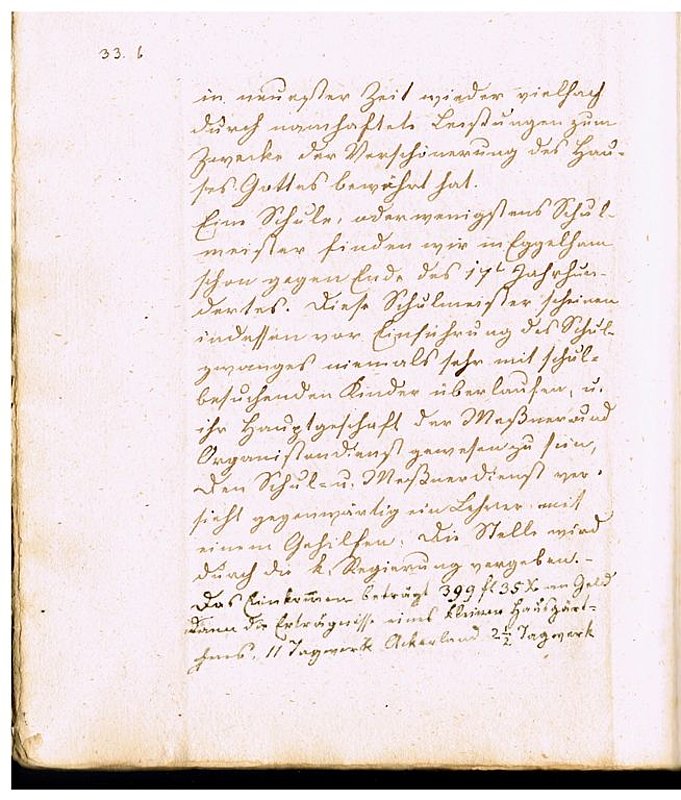 33. 6
in neuester Zeit wieder vielfach
durch namhafteste Leistungen zum
Zwecke der Verschönerung des Hau-
ses Gottes bewährt hat.
Eine Schule, oder wenigstens Schul-
meister finden wir in Eggelham
schon gegen Ende des 17t Jahrhun-
dertes. Diese Schulmeister scheinen
indessen vor Einführung des Schul-
zwanges niemals sehr mit schul-
besuchenden Kinder überlaufen, u.
ihr Hauptgeschäft der Meßner und
Organistendienst gewesen zu sein,
Den Schul- u. Meßnerdienst ver-
sieht gegenwärtig ein Lehrer mit
einem Gehilfen. Die Stelle wird
durch die k. Regierung vergeben. –
Das Einkom̄en beträgt 399 fl 35 X an Geld
dann die Erträgnisse eines kleinen Hausgärt-
chens, 11 Tagwerk Ackerland 2½ Tagwerk